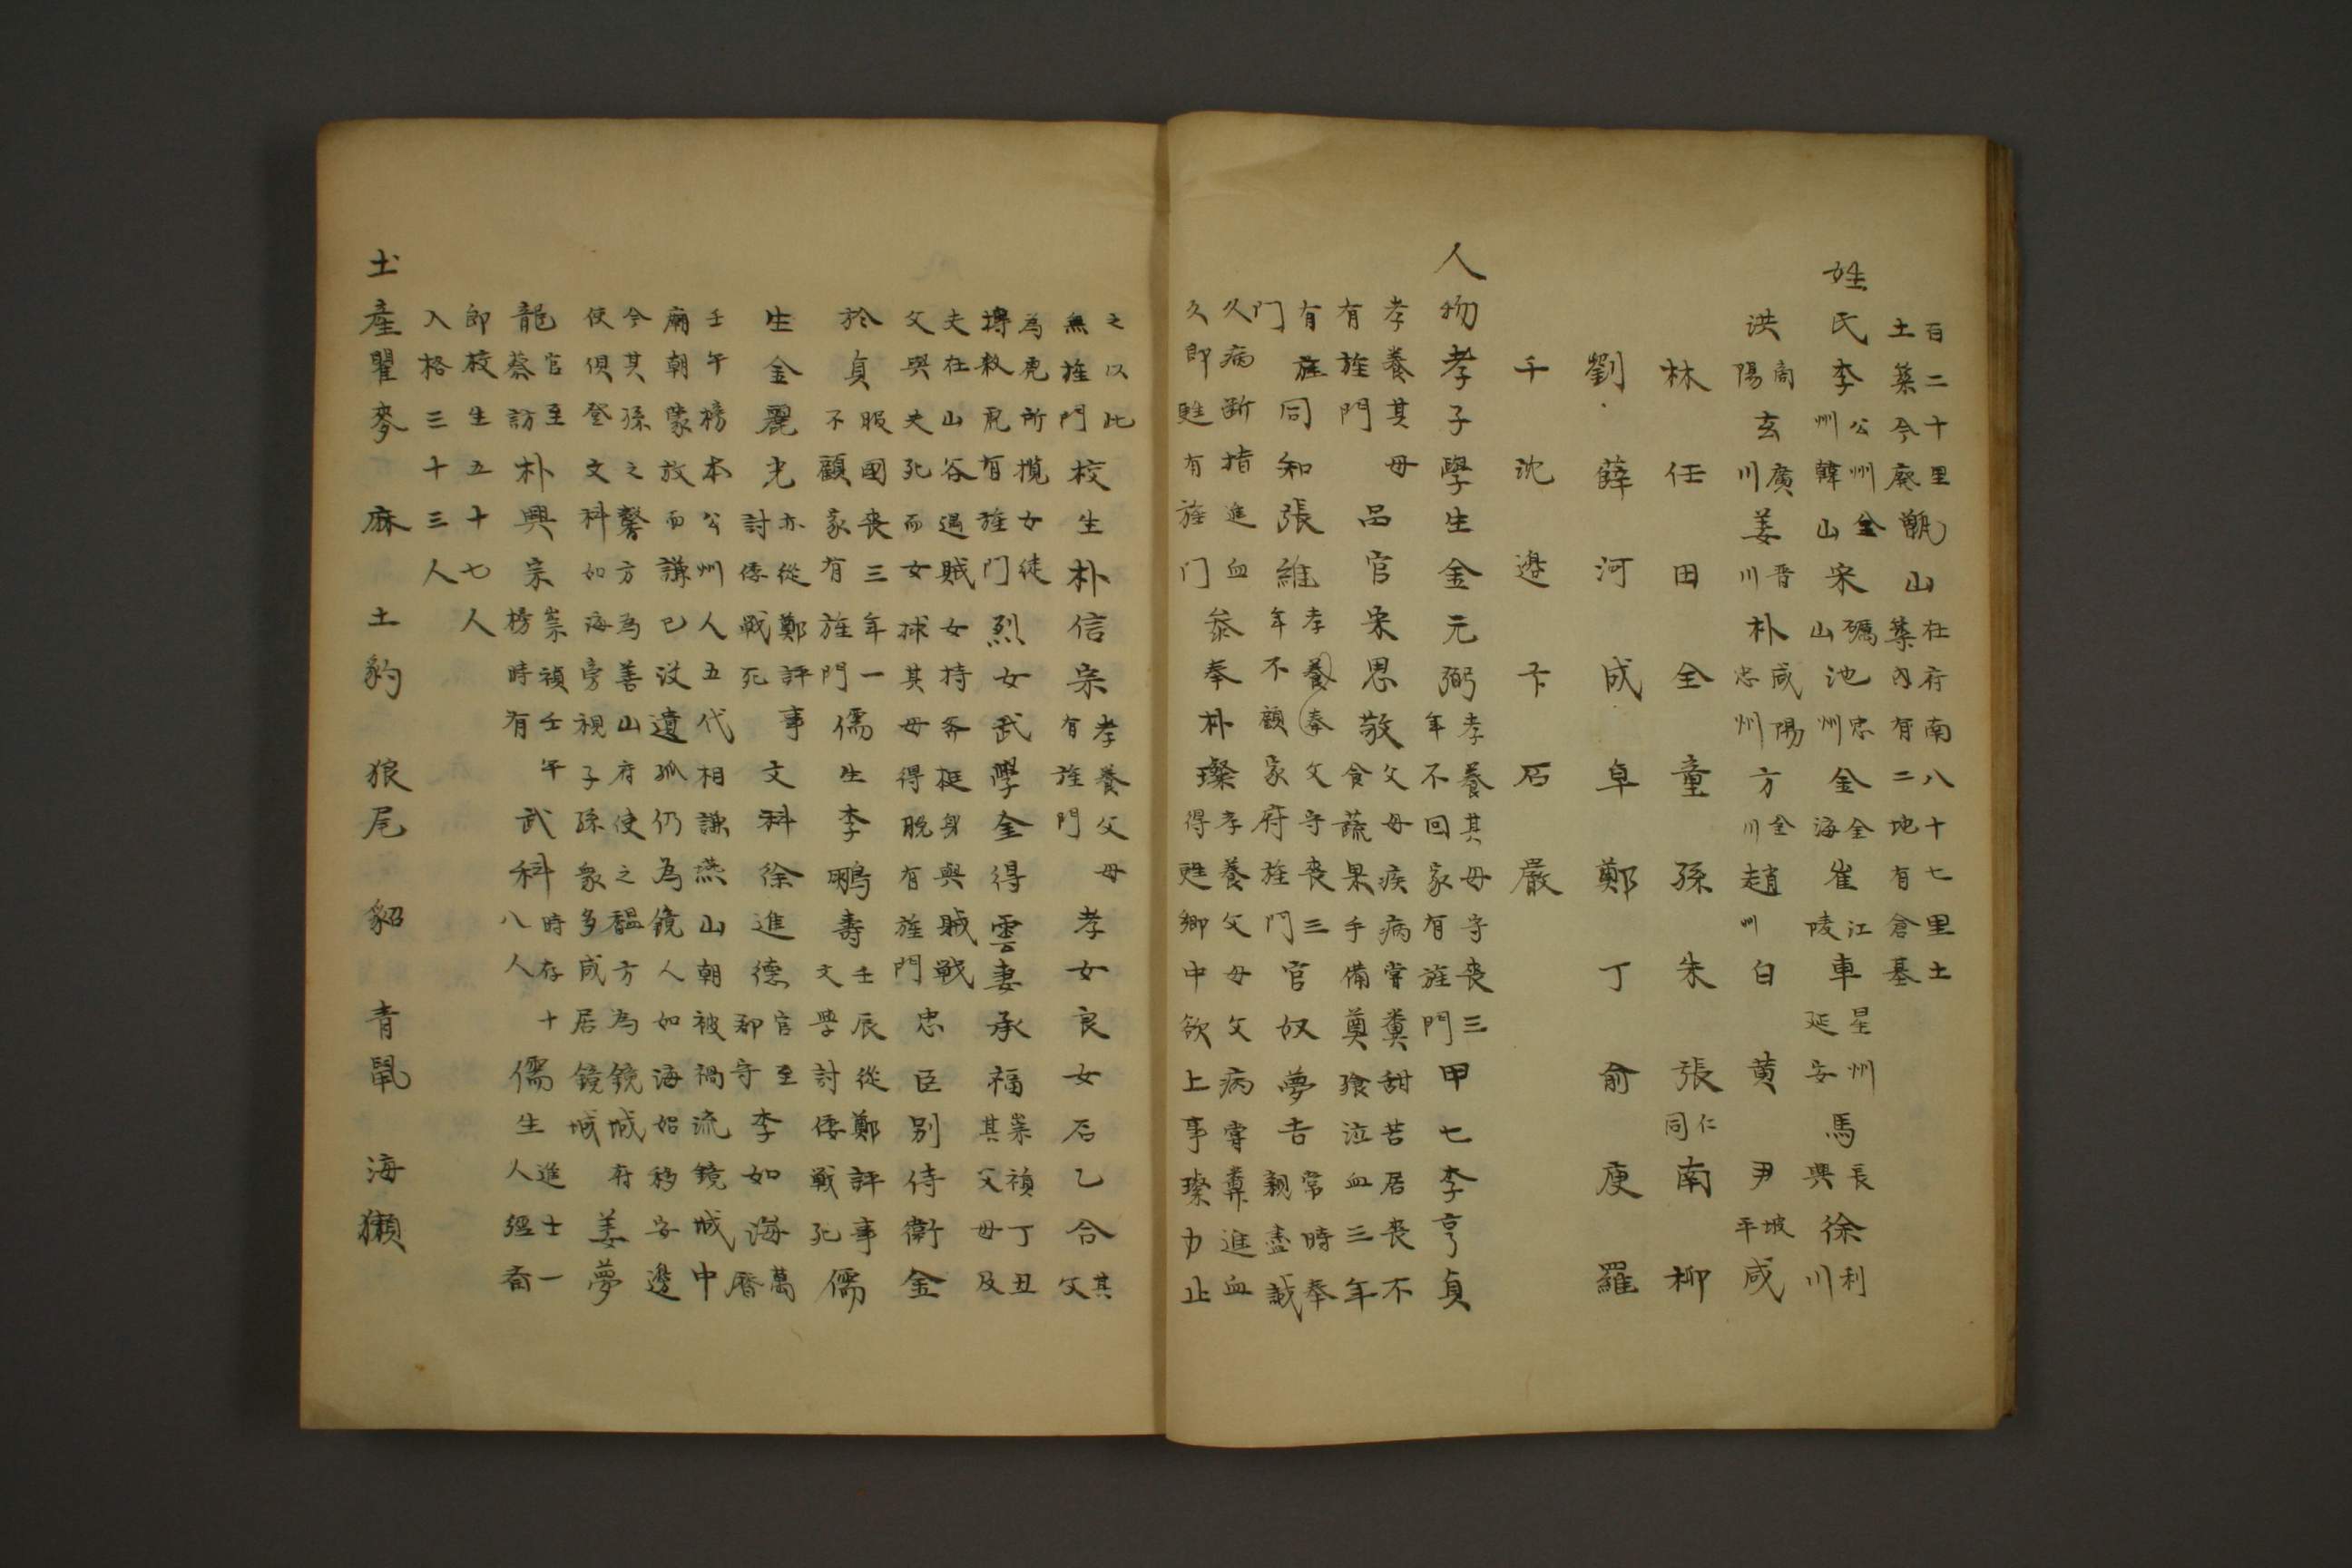 百二十里
土築今廢
甑山
在府南八十七里土
築內有二地有倉基
姓氏李
公州全
州韓山
宋
礪
山
池
忠
州
金
全
海
崔
江
陵
車
星州
延安
馬
長
興
徐
利
川
洪
南
陽
玄
廣
川
姜
晋
川
朴
咸陽
忠州
方
全
川
趙
州
白黃尹
坡
平
咸
林任田全童孫朱張
仁
同
南柳
劉薛河成卓鄭丁俞庾羅
千沈邊卞石嚴
人物孝子學生金元弼
孝養其母守丧三
年不回家有旌門
甲七李亨貞
孝養其母
有旌門
品官宋思敬
父母疾病甞糞甜苦居丧不
食蔬果手備奠飧泣血三年
有旌
門
同知張維
孝養奉父守丧三
年不顧家府旌門
官奴夢吉
常時奉
親盡誠
久病断指進血
久即甦有旌门
叅奉朴璨
孝養父母父病甞糞進血
得甦鄉中欲上事璨力止
之以此
無旌門
校生朴信宗
孝養父母
有旌門
孝女良女石乙合
其
父
為虎所攬女徒
搏殺乕有旌門
烈女武學金得雲妻承福
崇禎丁丑
其父母及
夫在山谷遇賊女持斧挺身與賊戦
父與夫死而女捄其母得脫有旌門
忠臣別侍衛金
於貞
服國丧三年一
不顧家有旌門
儒生李鵬壽
壬辰從鄭評事
文學討倭戦死
儒
生金麗光
亦從鄭評事
討倭戦死
文科徐進德
官至
郡守
李如海
萬
曆
壬午榜本公州人五代相謙燕山朝被禍流鏡城中
廟朝蒙放而謙已沒遺孤仍為鏡人如海始移安邊
今其孫之馨方為善山府使之馧方為鏡城府
使俱登文科如海旁視子孫衆多咸居鏡城
姜夢
龍
官至
蔡訪
朴興宗
崇禎壬午
榜時有
武科
時存十
八人
儒生
進士一
人經畬
郎校生五十七人
入格三十三人
土產瞿麥 麻 土豹 狼尾 貂 青鼠 海獺